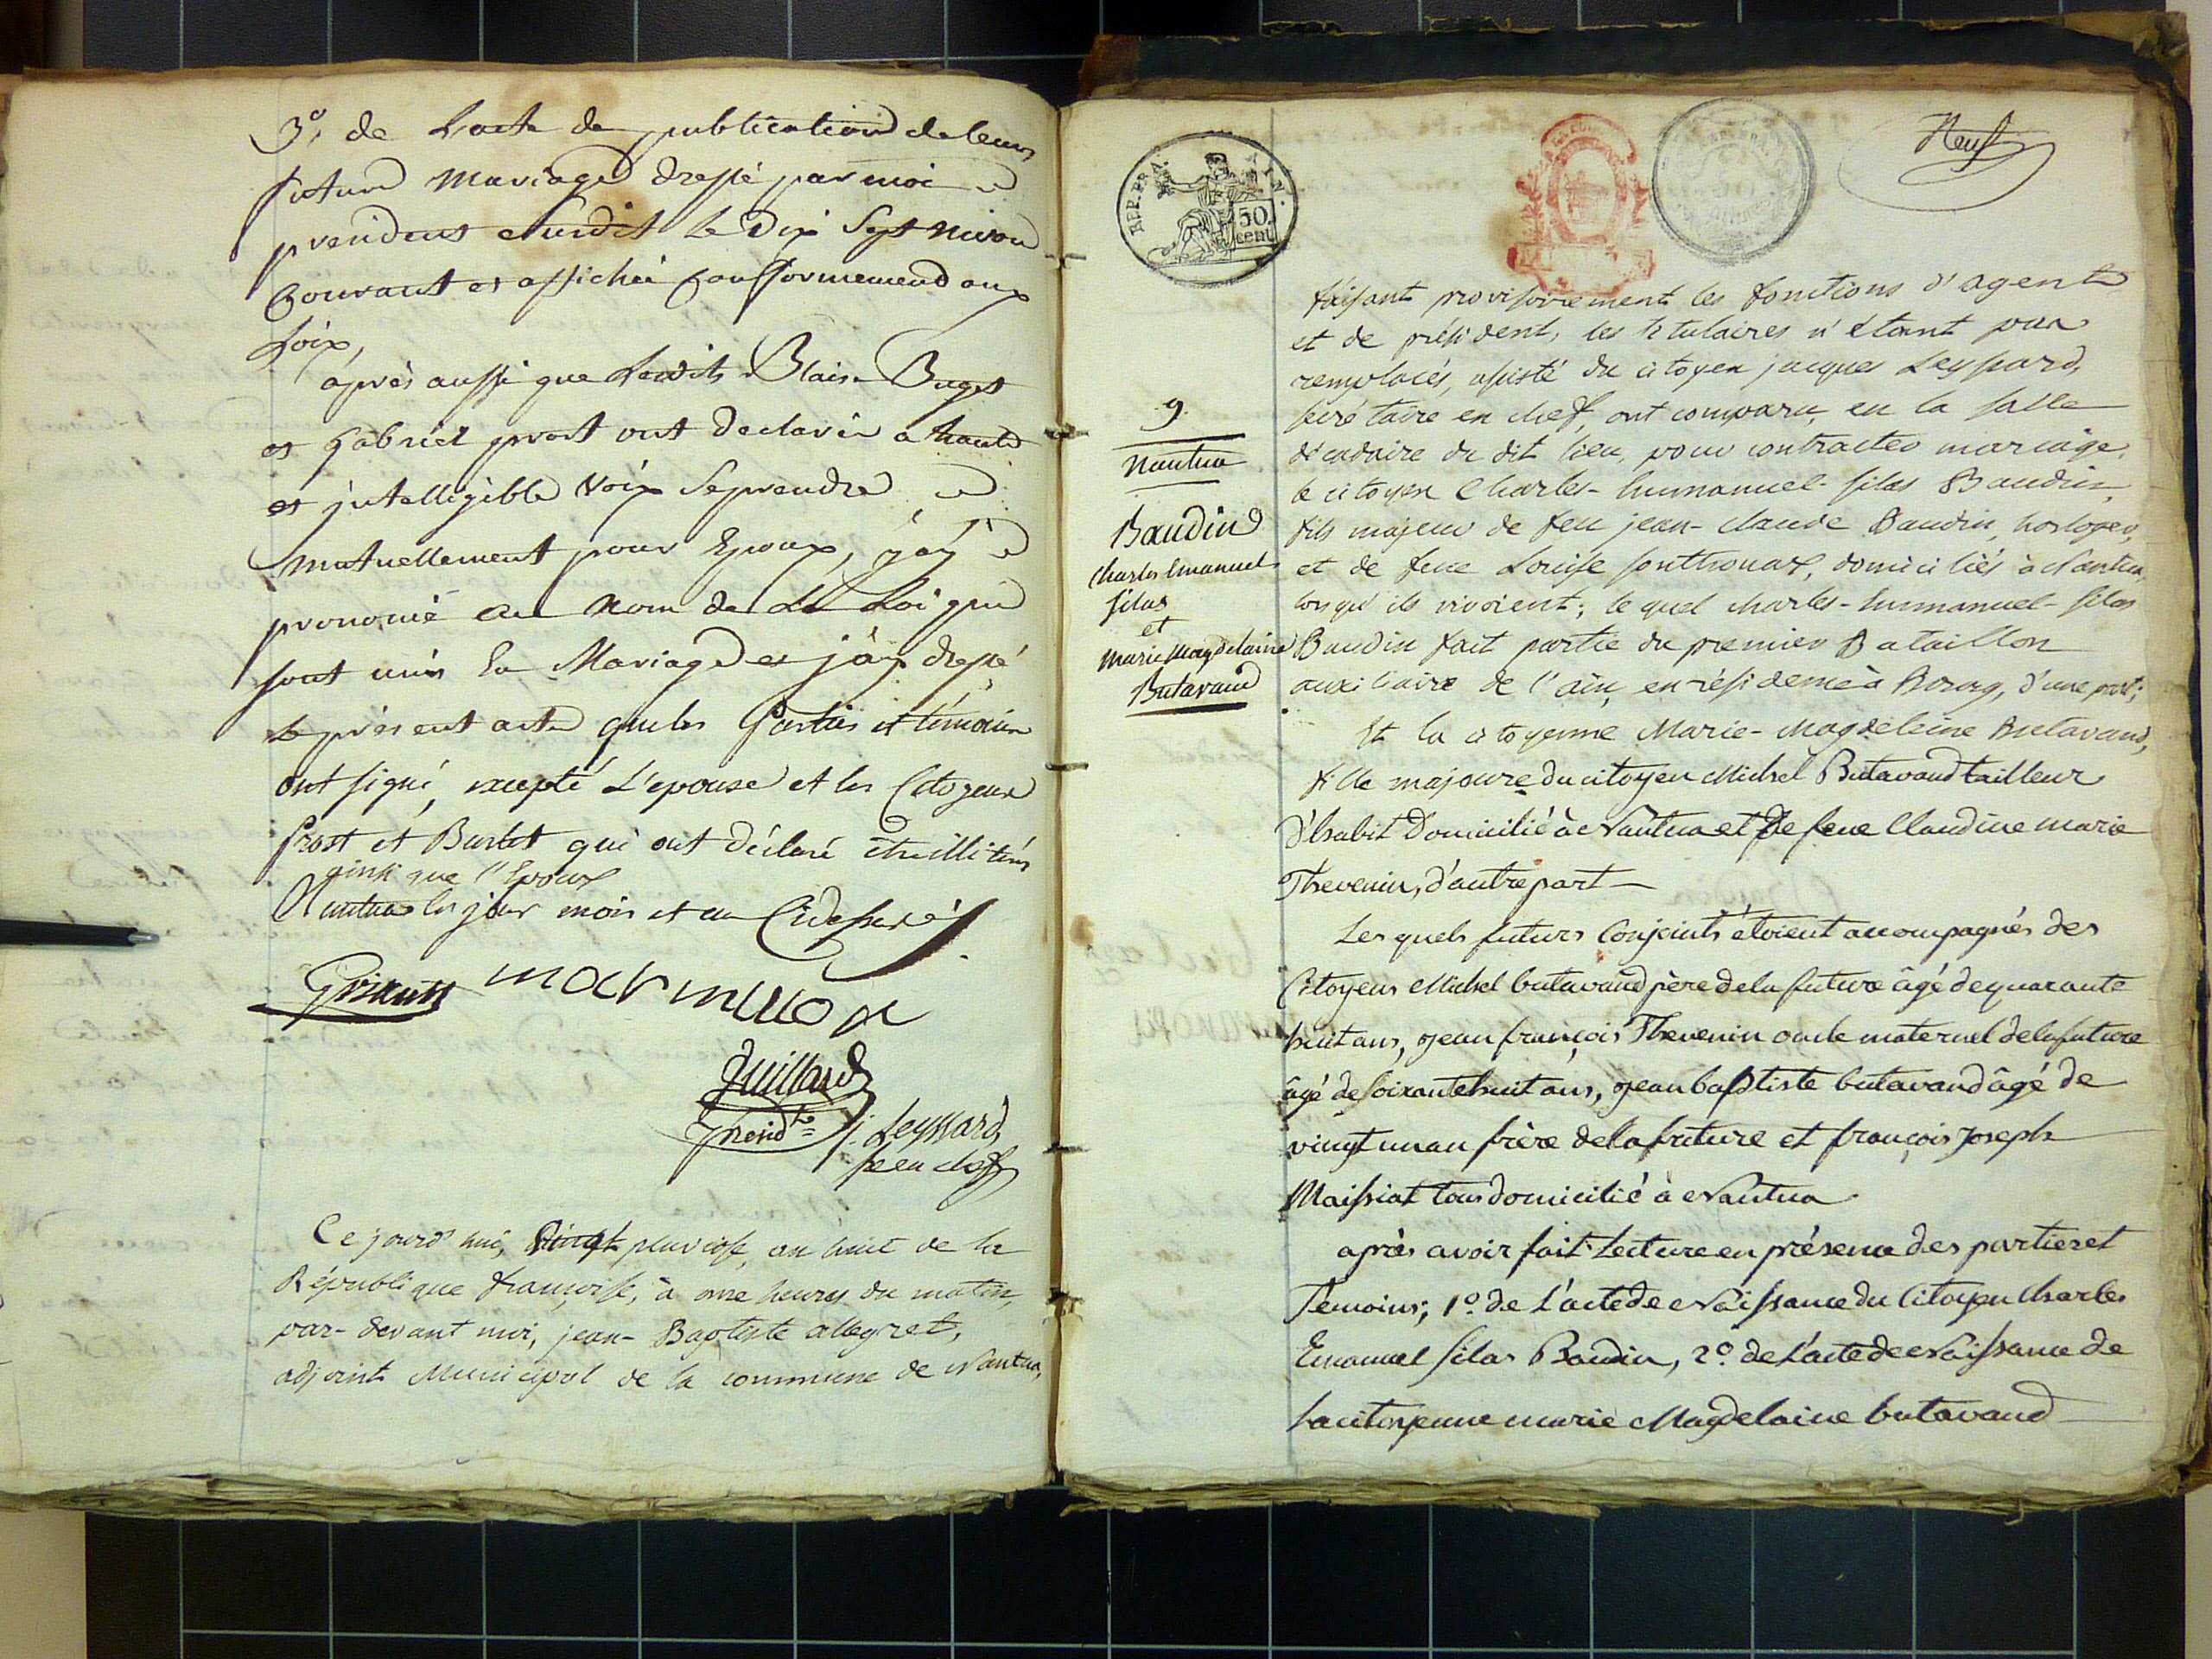 3º. de L'acte de publication de leurs
futurs Mariage dressé par moi
president susdit le Dix Sept nivose
Courant et affiché Conformement aux
Loix,
après aussi que Lesdits Blaise Buget
et Gabriel prost ont declarés a haute
et jntelligible Voix Se prendre
mutuellement pour Epoux, j'ay
prononcé au nom de La Loi qu'ils
sont unis En Mariage et j'ay dressé
le présent acte que les Parties et témoins
ont signé, excepté L'epouse et les Citoyens
Prost et Burtet qui ont déclaré être illitérés
ainsi que l'Epoux
Nantua les jour mois et an Cidessus
marmillon
Juillard
Presid.te
J. Leyssard
se en chef
Ce jourd'hui, Vingt pluviose, an huit de la
République françoise, à onze heures du matin,
par-devant moi, jean-Baptiste allegret,
adjoint Municipal de la commune de Nantua,
REP. FRA.
50
cent
Neuf
faisant provisoirement les fonctions d'agent
et de président, les titulaires n'étant pas
remplacés, assisté du citoyen jacques Leyssard,
secrétaire en chef, ont comparu, en la salle
décadaire du dit lieu, pour contracter mariage,
le citoyen Charles-Emmanuel-silas Baudin,
fils majeur de feu jean-claude Baudin, horloger,
et de feue Louise Sonthonax, domiciliés à Nantua,
lorsqu'ils vivoient; le quel charles-Emmanuel-silas
Baudin fait partie du premier Bataillon
auxiliaire de l'ain, en résidence à Bourg, d'une part;
Et la citoyenne Marie-Magdeleine Butavand,
fille majeure du citoyen Michel Butavand tailleur
d'habit Domicilié à Nantua et de feue Claudine marie
Thevenin, d'autre part
9
Nantua
Baudin
Charles Emanuel
silas
et
Marie Magdelaine
Butavand
Les quels futurs Conjoints étoient accompagnés des
Citoyens Michel butavand père de la future âgé de quarante
huit ans, jean françois Thevenin oncle maternel de la future
âgé de soixante huit ans, jean baptiste butavand âgé de
vingt un an frère de la future et françois Joseph
Maissiat tous domicilié à Nantua
après avoir fait Lecture en présence des parties et
Temoins; 1º. de L'acte de Naissance du Citoyen Charles
Emanuel silas Baudin, 2º. de L'acte de Naissance de
la citoyenne marie Magdelaine butavand